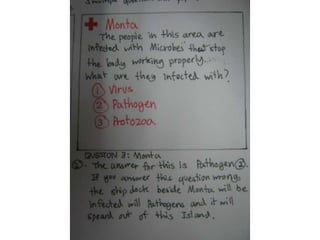 Monta
The people in this area are
infected with Microbes that stop
the body working properly...
what are they infected with?
① Virus
② Pathogen
③ Protozoa
QUESTION 3: Monta
The answer for this is Pathogen ②.
If you answer this question wrong,
the ship dock beside Monta will be
infected will Pathogens and it will
speard out of this Island.